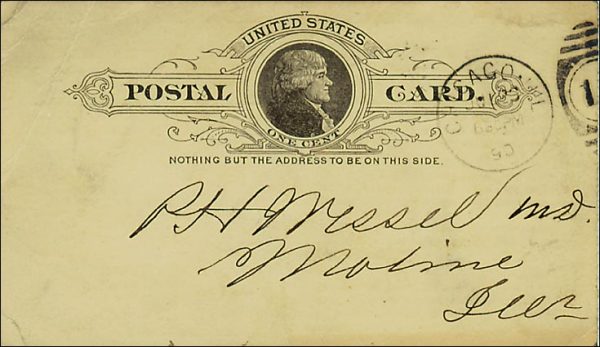 UNITED STATES
POSTAL CARD.
ONE CENT
NOTHING BUT THE ADDRESS TO BE ON THIS SIDE.
CHICAGO, ILL.
90
1
P H Wessel MD.
Moline
Ills